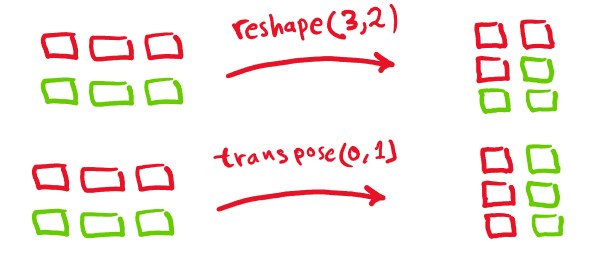 reshape(3,2)
transpose(0,1)